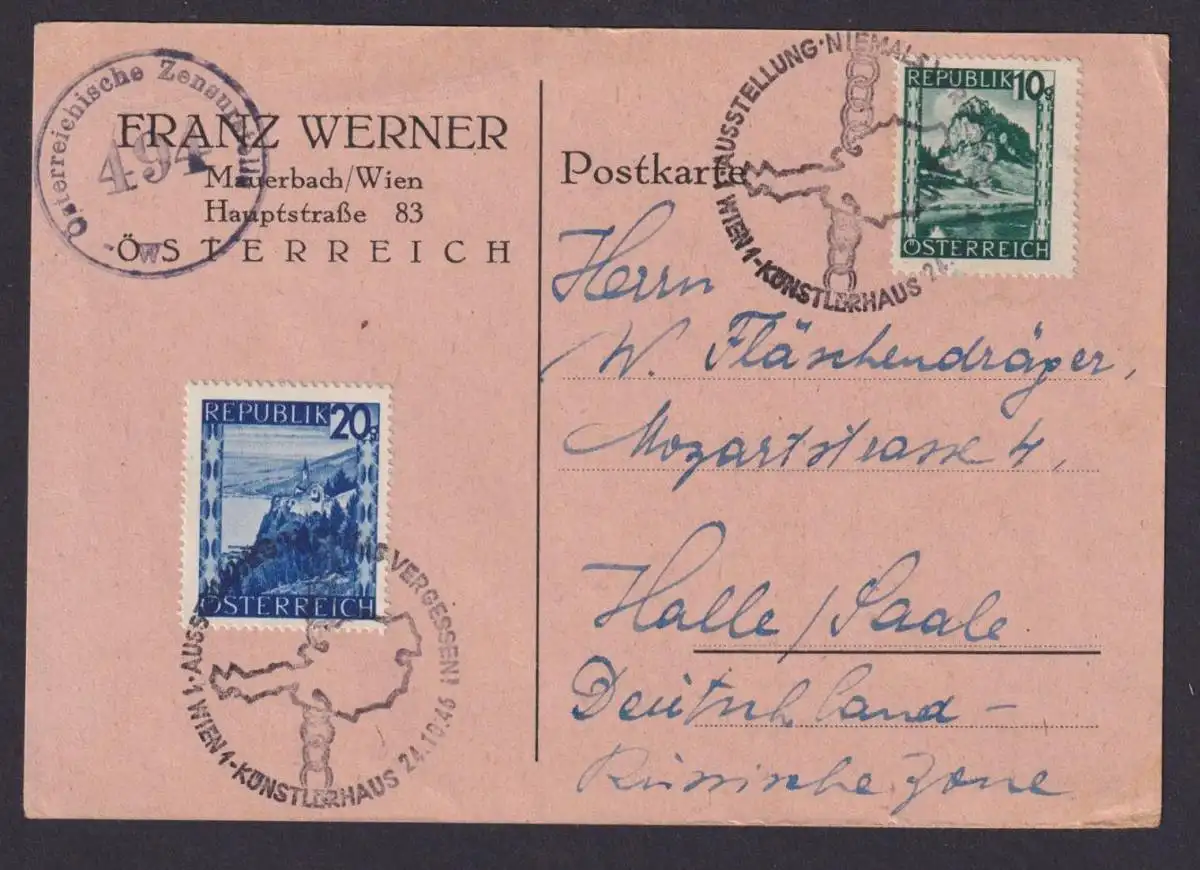 Österreichische Zensurstelle
494
W
FRANZ WERNER
Mauerbach/Wien
Hauptstraße 83
ÖSTERREICH
REPUBLIK 20g
ÖSTERREICH
WIEN 1 · AUSS VERGESSEN!
WIEN 1-KÜNSTLERHAUS 24.10.46
Postkarte
AUSSTELLUNG · NIEMALS
WIEN 1-KÜNSTLERHAUS 24.
REPUBLIK 10g
ÖSTERREICH
Herrn
W. Fläschendräger,
Mozartstrasse 4,
Halle/Saale
Deutschland -
Russische Zone